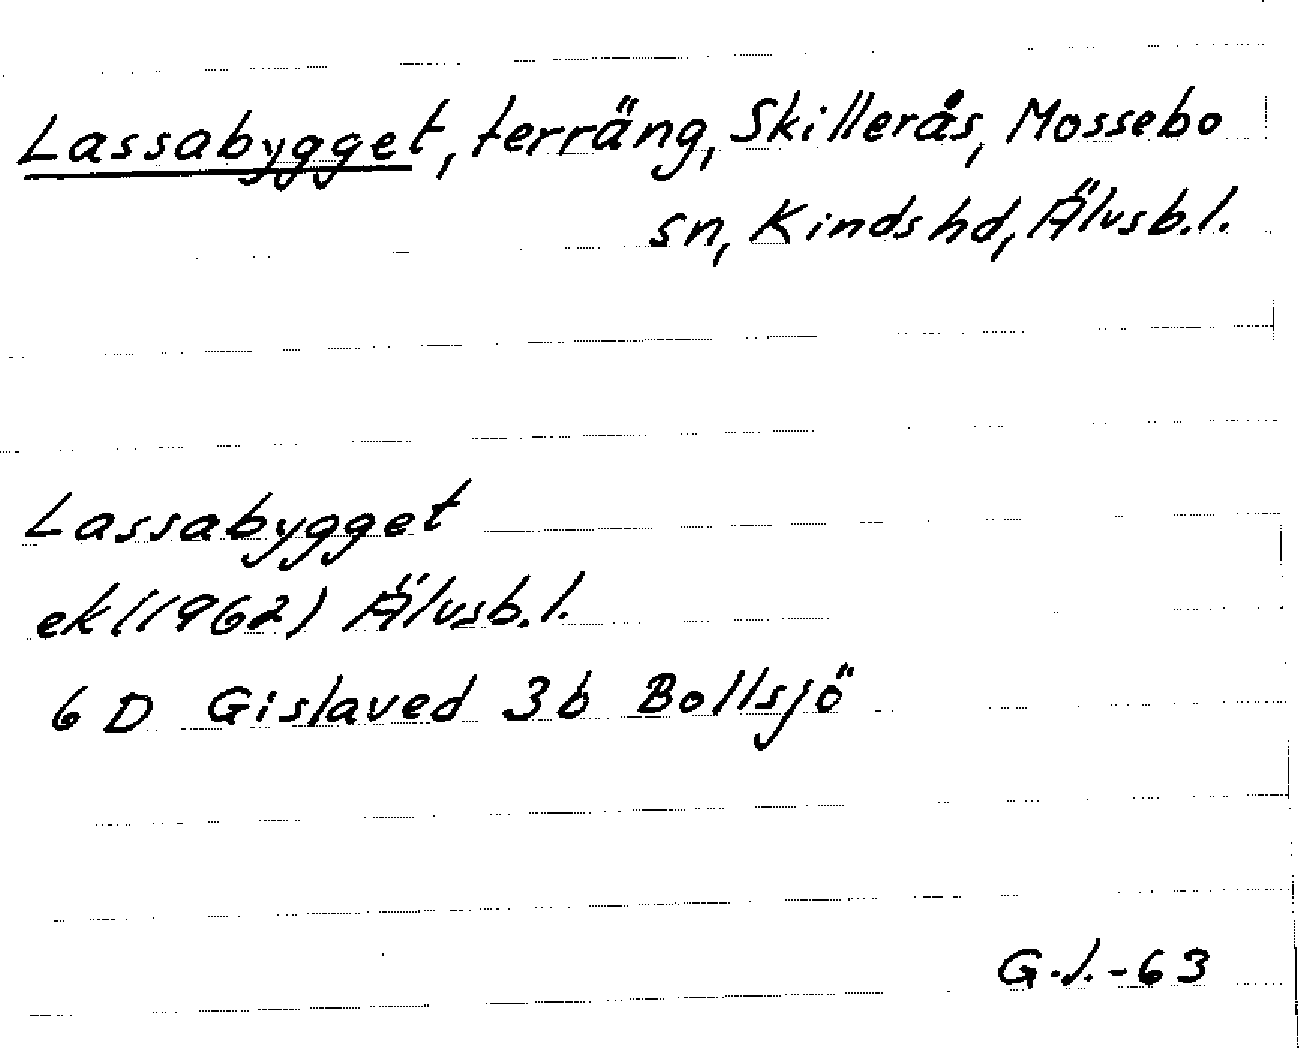 Lassabygget, terräng, Skillerås, Mossebo
sn, Kinds hd, Älvsb.l.
Lassabygget
ek (1962) Älvsb.l.
6 D Gislaved 3b Bollsjö
G.l.-63